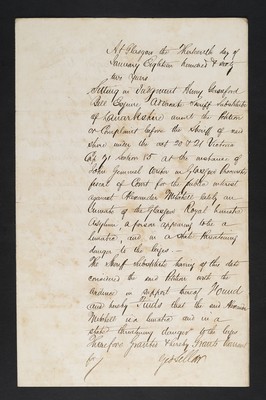 At Glasgow the Thirteenth day of
January Eighteen hundred & sixty
two years
Sitting in Judgment Henry Glassford
Bell Esquire, Advocate Sheriff Substitute
of Lanarkshire under the Petition
or Complaint before the Sheriff of said
shire under the act 20 & 21 Victoria
Cap 71 section 85 at the instance of
John Gemmel Writer in Glasgow Procurator
fiscal of Court for the public interest
against Alexander Mitchell lately an
Inmate of the Glasgow Royal Lunatic
Asylum, a person appearing to be a
lunatic, and in a state threatening
danger to the lieges
The Sheriff Substitute having of this date
considered the said Petition with the
evidence in support thereof Found
and hereby Finds that the said Alexander
Mitchell is a lunatic and in a
state threatening danger to the lieges
Therefore Granted & hereby Grants Warrant
for